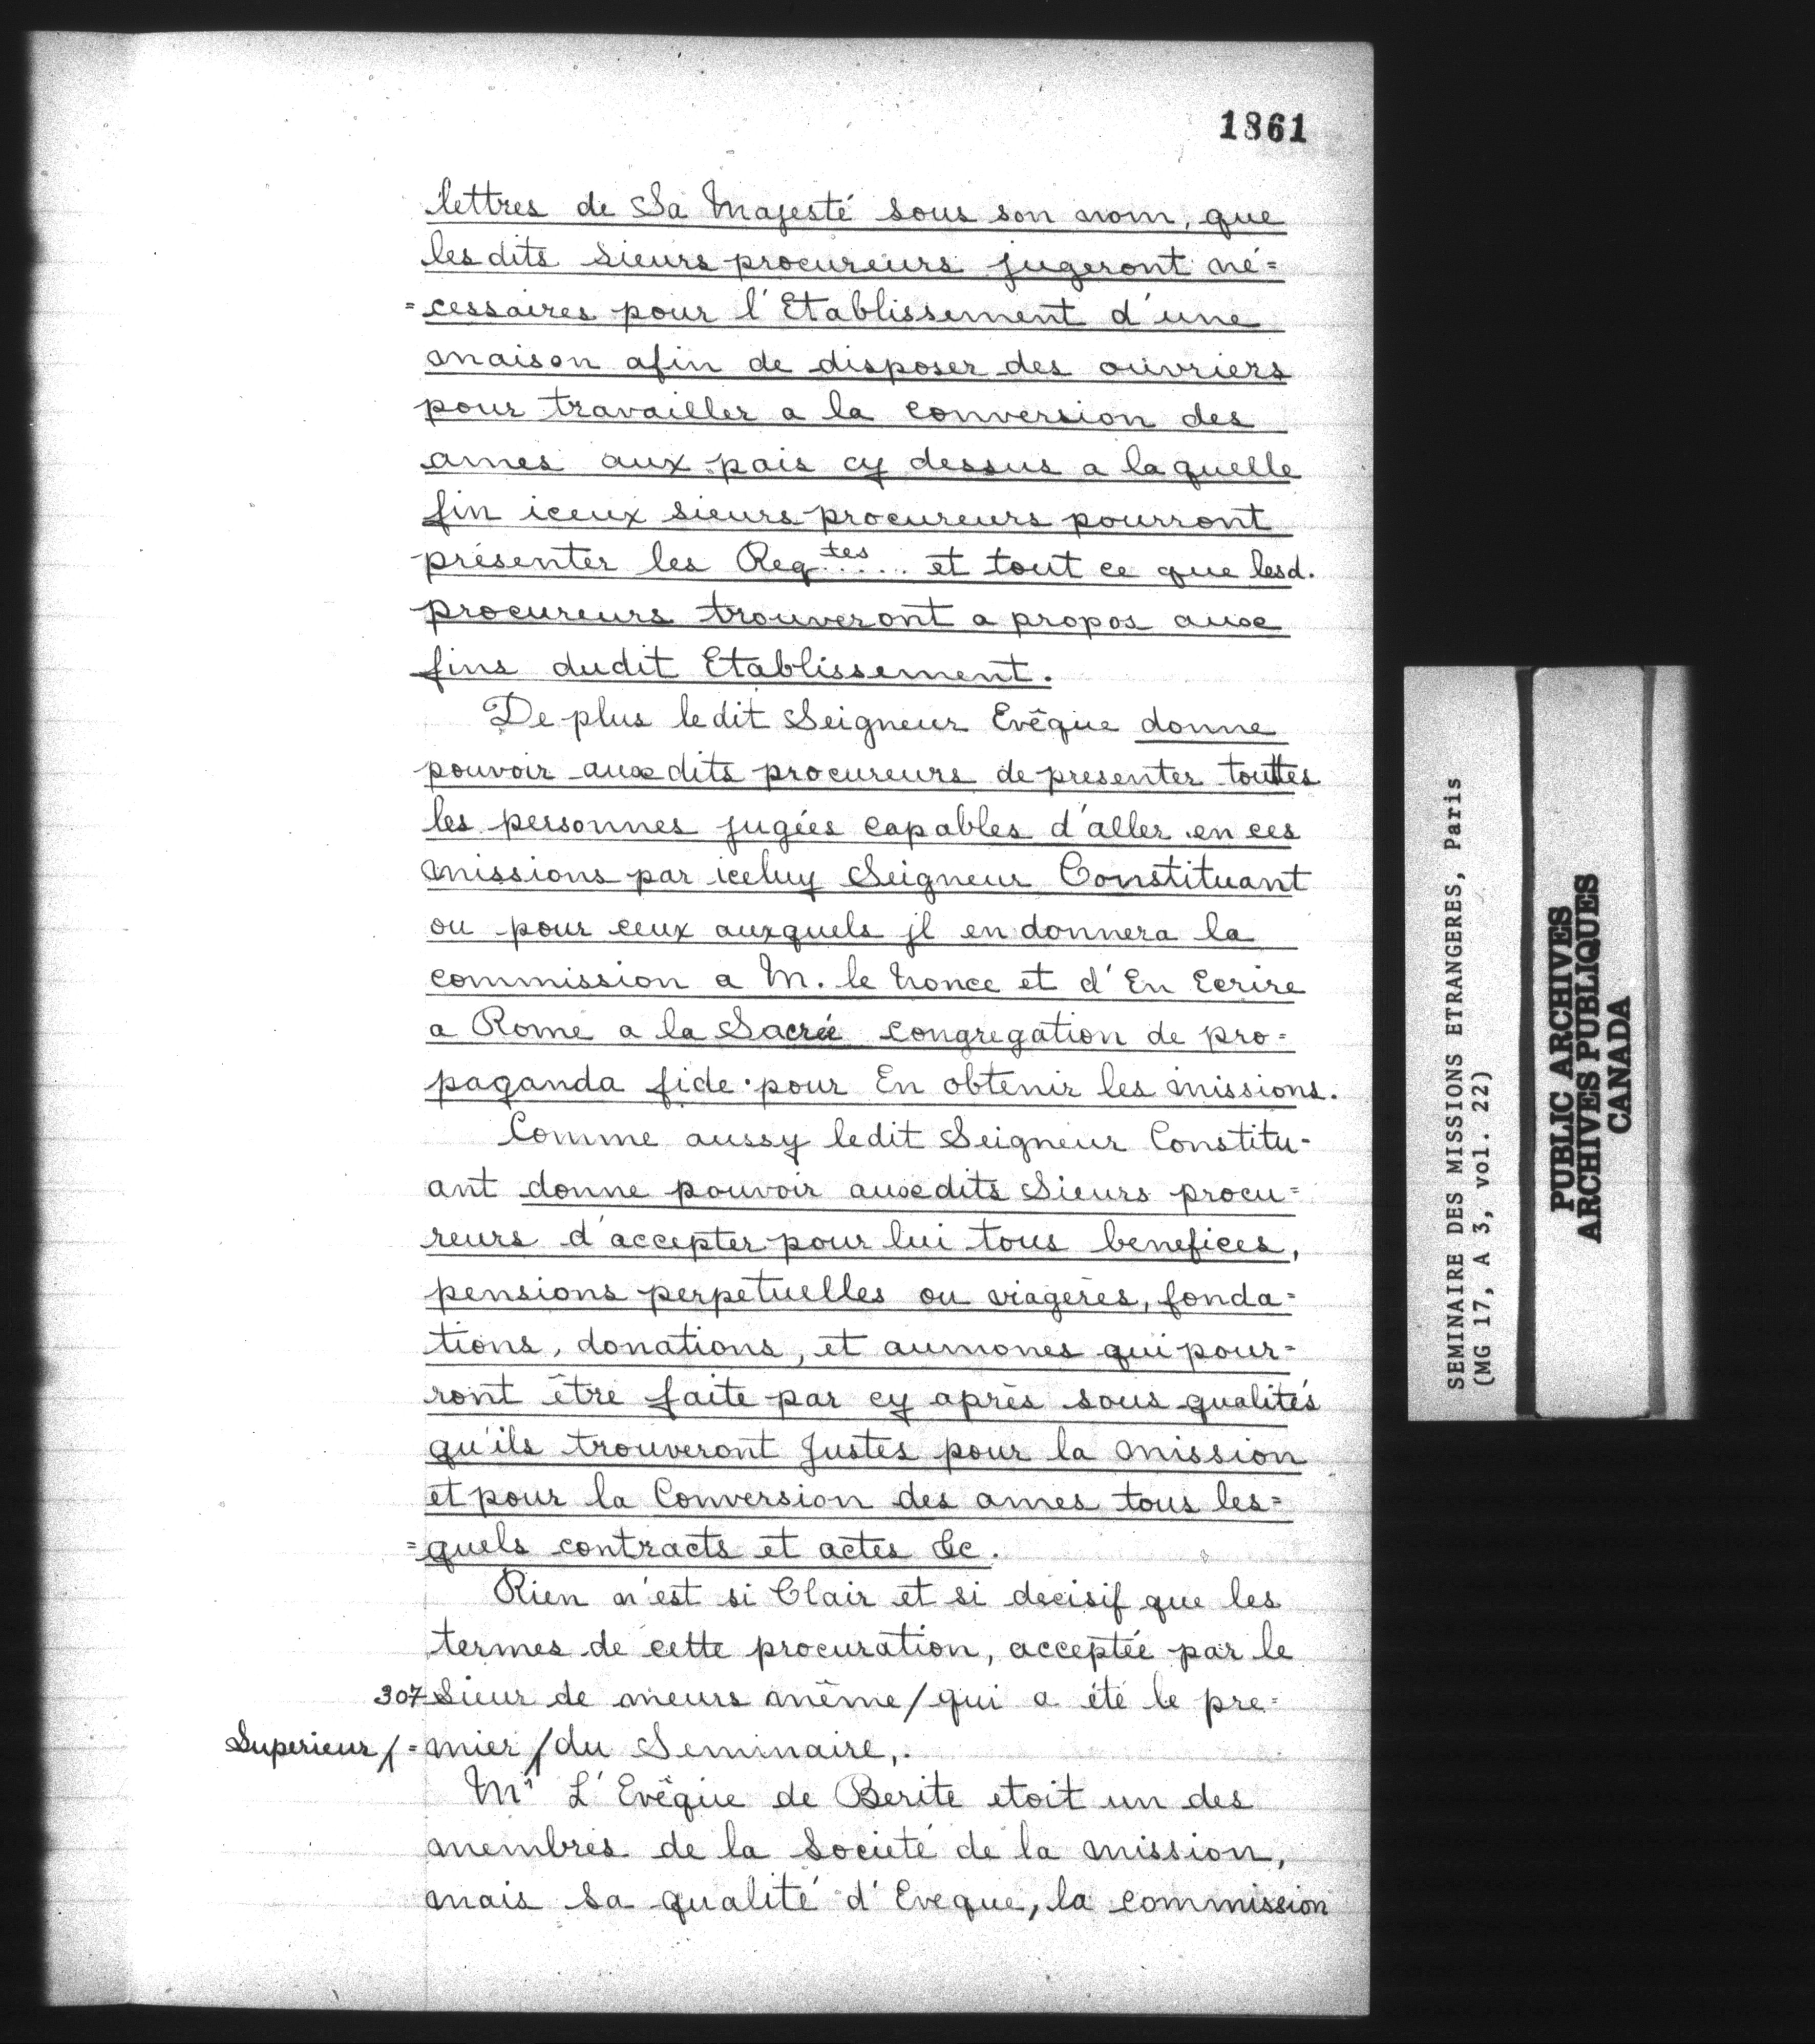 1861
lettres de Sa Majesté sous son nom, que
lesdits sieurs procureurs jugeront né=
=cessaires pour l'Etablissement d'une
maison afin de disposer des ouvriers
pour travailler a la conversion des
ames aux pais cy dessus a laquelle
fin iceux sieurs procureurs pourront
présenter les Reqtes..... et tout ce que lesd.
procureurs trouveront a propos aux
fins dudit Etablissement.
De plus ledit Seigneur Evêque donne
pouvoir auxdits procureurs de presenter touttes
les personnes jugées capables d'aller en ces
missions par iceluy Seigneur Constituant
ou pour ceux auxquels jl en donnera la
commission a M. le Nonce et d'En Ecrire
a Rome a la Sacrée congregation de pro=
paganda fide pour En obtenir les missions.
Comme aussy ledit Seigneur Constitu-
ant donne pouvoir auxdits Sieurs procu=
reurs d'accepter pour lui tous benefices,
pensions perpetuelles ou viagères, fonda=
tions, donations, et aumones qui pour=
ront être faite par cy après sous qualités
qu'ils trouveront Justes pour la mission
et pour la Conversion des ames tous les=
=quels contracts et actes &c.
Rien n'est si Clair et si decisif que les
termes de cette procuration, acceptée par le
307 Sieur de meurs même/qui a été le pre=
Superieur/ =mier/du Seminaire,.
Mr L'Evêque de Berite etoit un des
membres de la Societé de la mission,
mais sa qualité d'Eveque, la commission
SEMINAIRE DES MISSIONS ETRANGERES, Paris
(MG 17, A 3, vol. 22)
PUBLIC ARCHIVES
ARCHIVES PUBLIQUES
CANADA